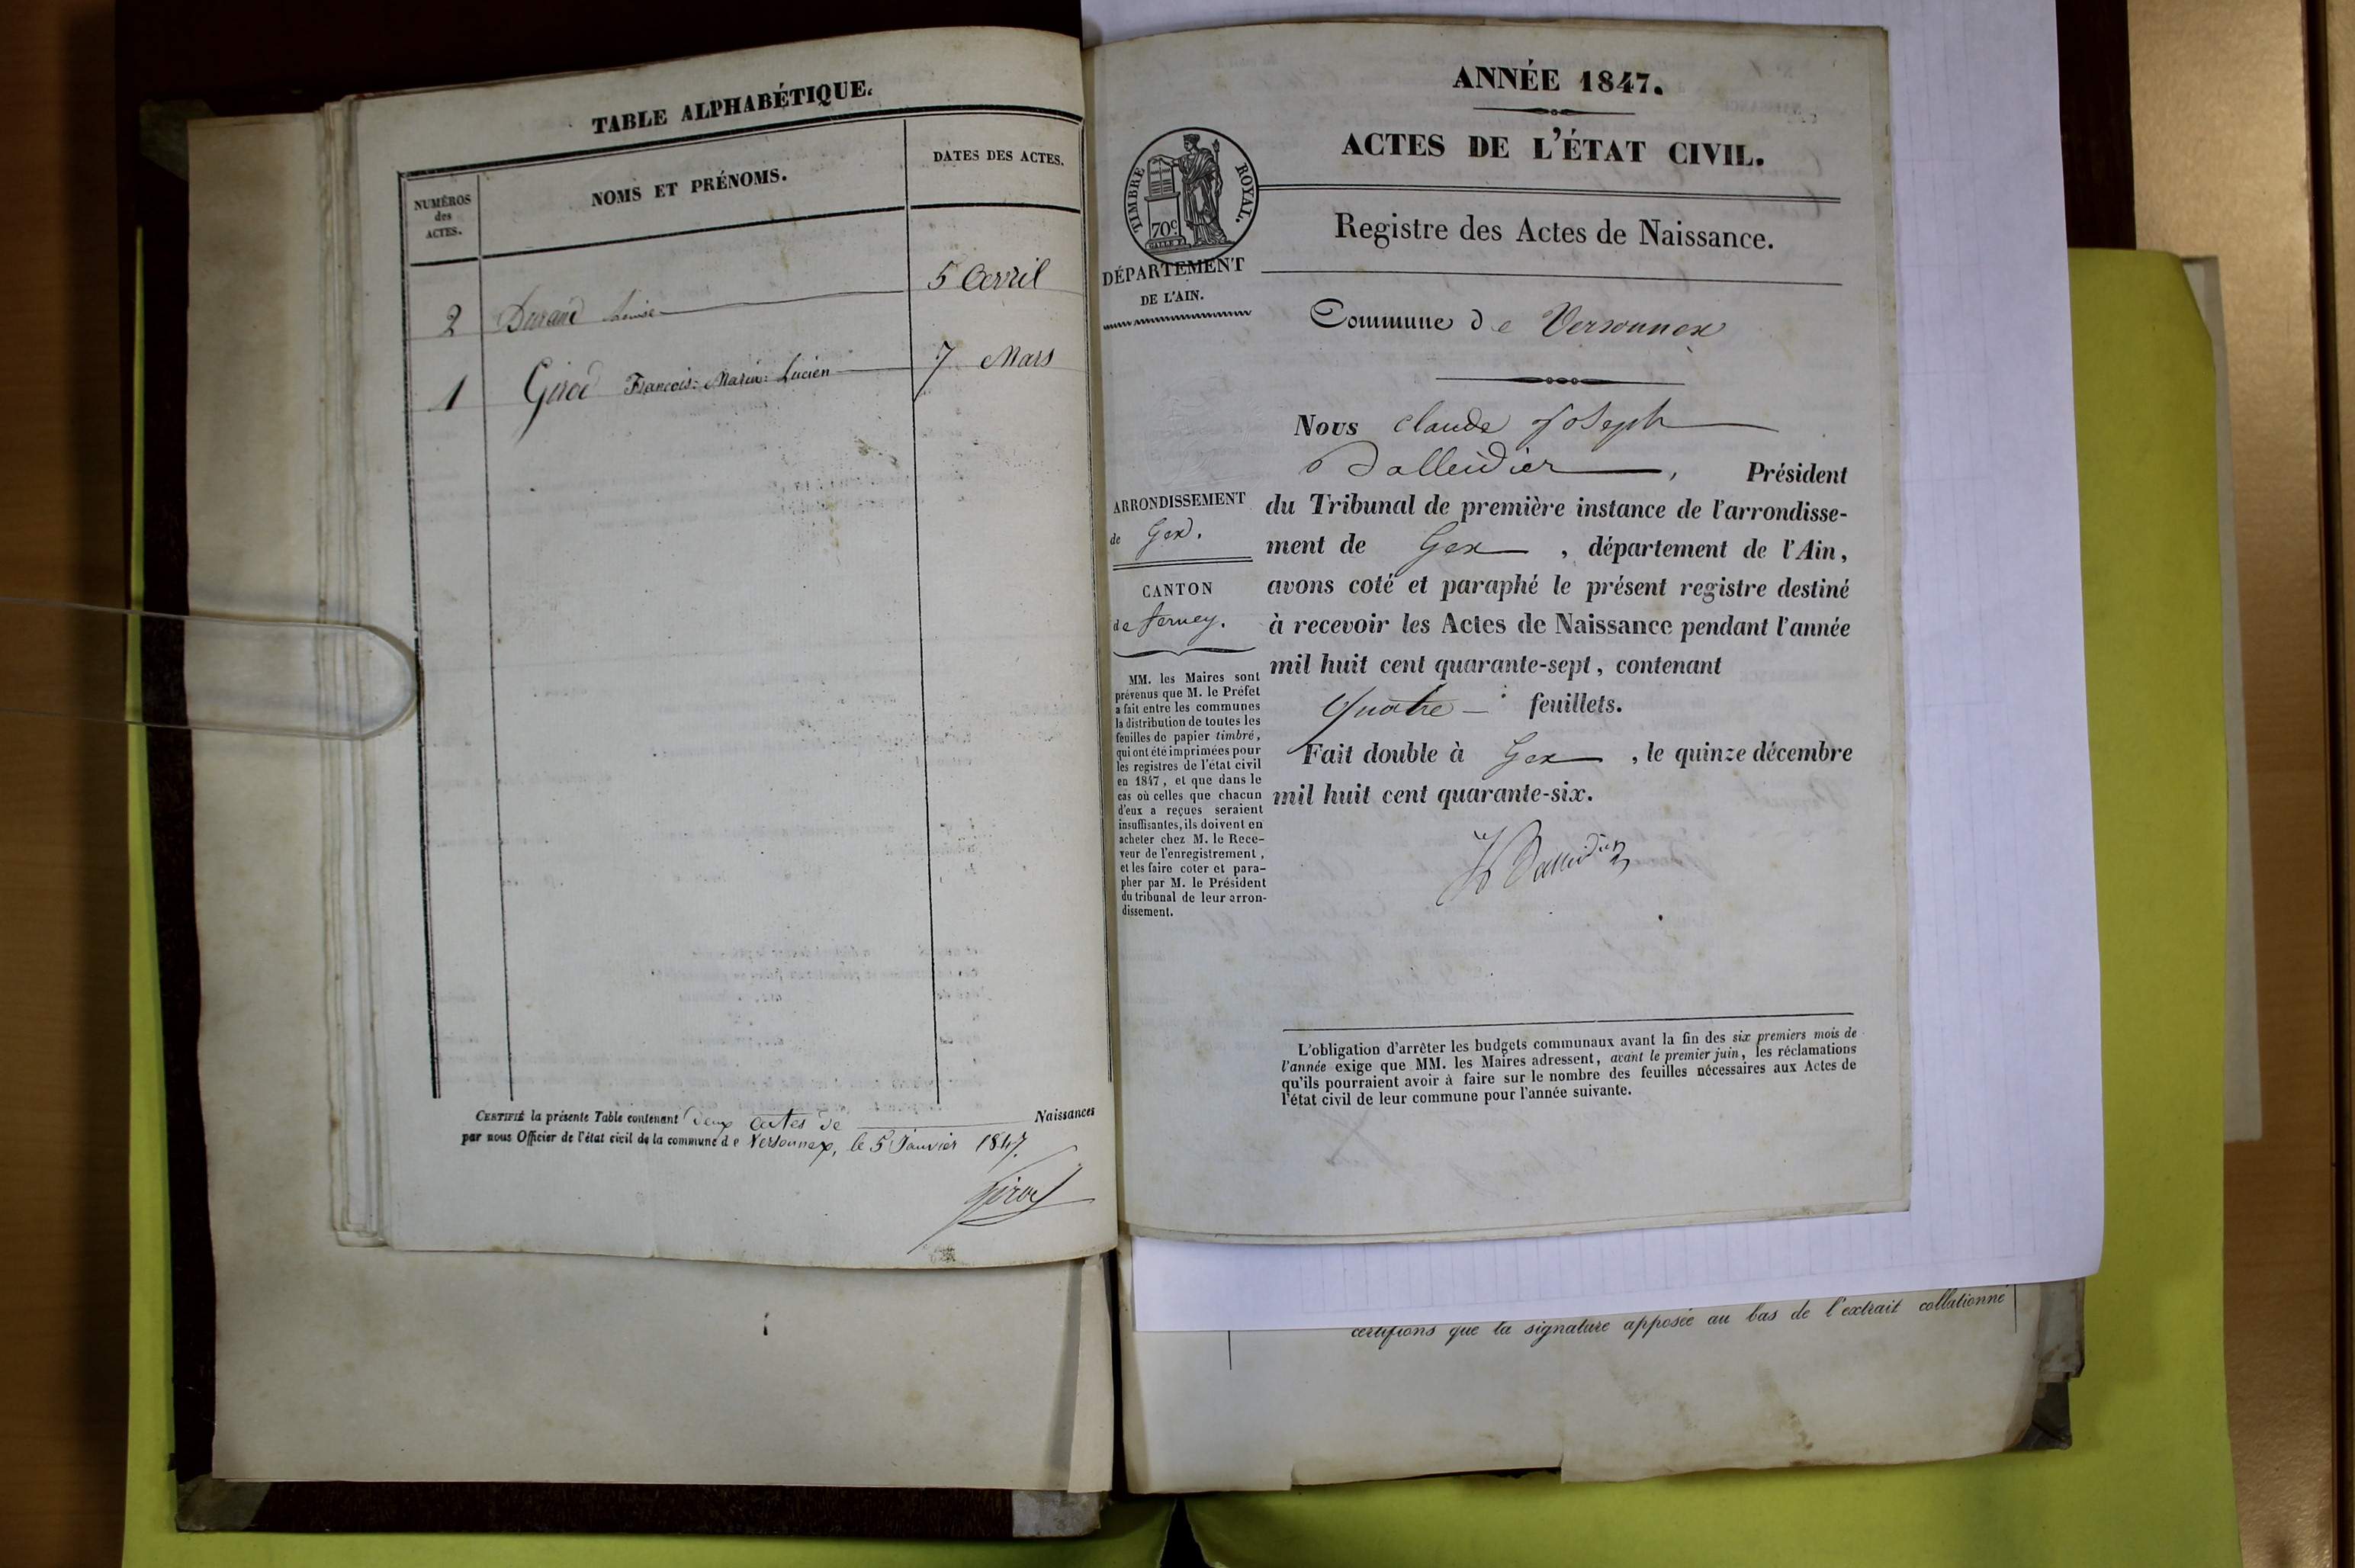 TABLE ALPHABÉTIQUE.
NUMÉROS
des
ACTES.
NOMS ET PRÉNOMS.
DATES DES ACTES.
2 Durand Louise 5 Avril
1 Girod François-Marie-Lucien 7 Mars
CERTIFIÉ la présente Table contenant deux actes de Naissances
par nous Officier de l'état civil de la commune de Versonnex, le 5 Janvier 1847.
Girod
ANNÉE 1847.
ACTES DE L'ÉTAT CIVIL.
TIMBRE ROYAL.
70c
DÉPARTEMENT
DE L'AIN.
Registre des Actes de Naissance.
Commune de Versonnex
Nous Claude Joseph
Dalleidier, Président
du Tribunal de première instance de l'arrondisse-
ment de Gex, département de l'Ain,
avons coté et paraphé le présent registre destiné
à recevoir les Actes de Naissance pendant l'année
mil huit cent quarante-sept, contenant
quatre feuillets.
Fait double à Gex, le quinze décembre
mil huit cent quarante-six.
ARRONDISSEMENT
de Gex.
CANTON
de Ferney.
MM. les Maires sont
prévenus que M. le Préfet
a fait entre les communes
la distribution de toutes les
feuilles de papier timbré,
qui ont été imprimées pour
les registres de l'état civil
en 1847, et que dans le
cas où celles que chacun
d'eux a reçues seraient
insuffisantes, ils doivent en
acheter chez M. le Rece-
veur de l'enregistrement,
et les faire coter et para-
pher par M. le Président
du tribunal de leur arron-
dissement.
L'obligation d'arrêter les budgets communaux avant la fin des six premiers mois de
l'année exige que MM. les Maires adressent, avant le premier juin, les réclamations
qu'ils pourraient avoir à faire sur le nombre des feuilles nécessaires aux Actes de
l'état civil de leur commune pour l'année suivante.
certifions que la signature apposée au bas de l'extrait collationné